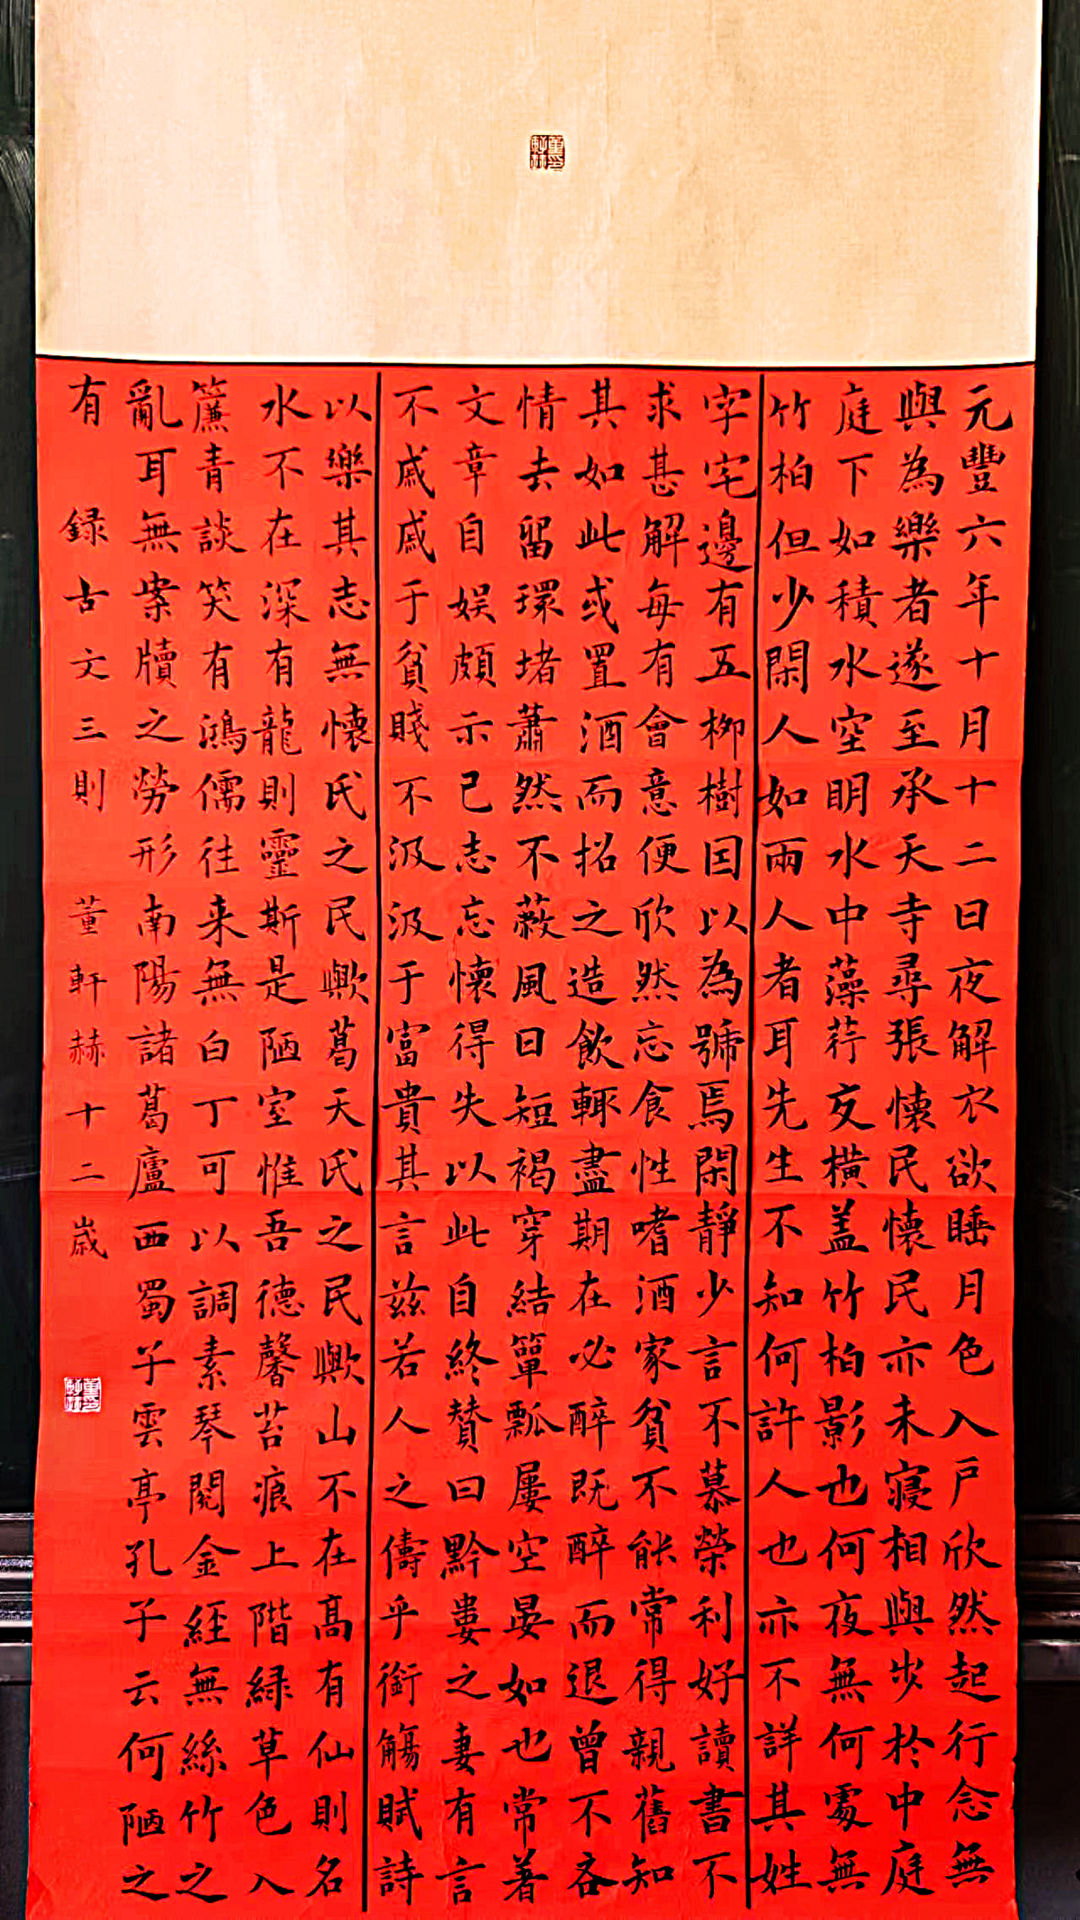 元豐六年十月十二日夜解衣欲睡月色入戶欣然起行念無
與為樂者遂至承天寺尋張懷民懷民亦未寢相與步於中庭
庭下如積水空明水中藻荇交橫盖竹柏影也何夜無何處無
竹柏但少閑人如兩人者耳先生不知何許人也亦不詳其姓
字宅邊有五柳樹因以為號焉閑靜少言不慕榮利好讀書不
求甚解每有會意便欣然忘食性嗜酒家貧不能常得親舊知
其如此或置酒而招之造飲輒盡期在必醉既醉而退曾不吝
情去留環堵蕭然不蔽風日短褐穿結簞瓢屢空晏如也常著
文章自娛頗示己志忘懷得失以此自終贊曰黔婁之妻有言
不戚戚于貧賤不汲汲于富貴其言茲若人之儔乎銜觴賦詩
以樂其志無懷氏之民歟葛天氏之民歟山不在高有仙則名
水不在深有龍則靈斯是陋室惟吾德馨苔痕上階緑草色入
簾青談笑有鴻儒往来無白丁可以調素琴閱金經無絲竹之
亂耳無案牘之勞形南陽諸葛廬西蜀子雲亭孔子云何陋之
有 録古文三則 董軒赫十二歲